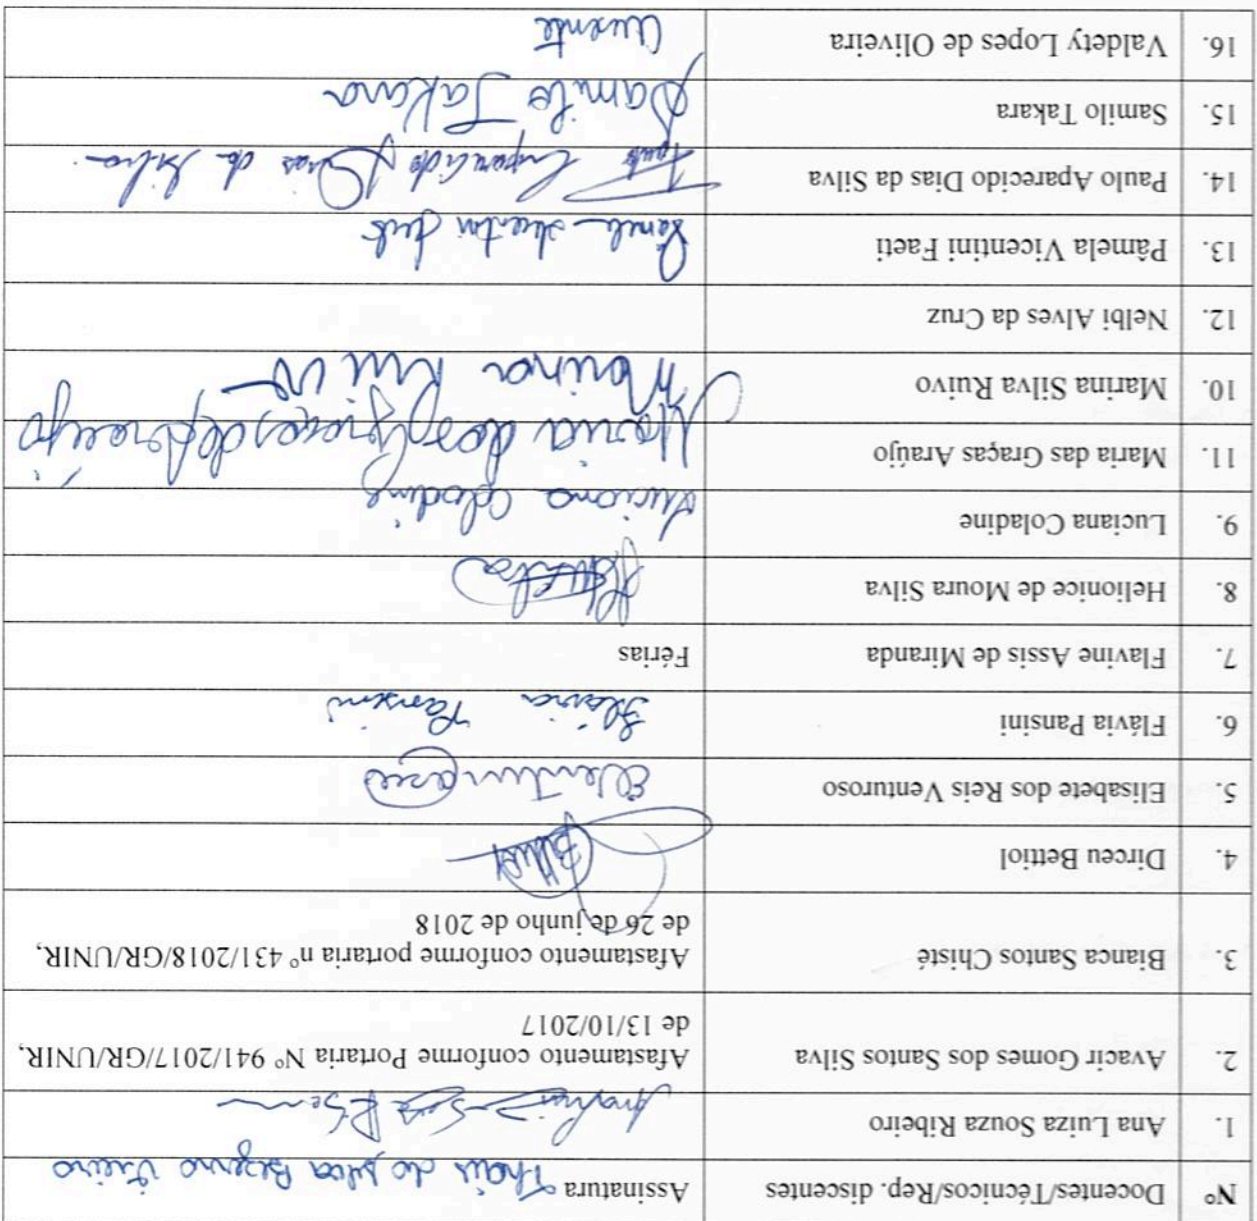 Nº Docentes/Técnicos/Rep. discentes Assinatura Thais da Silva Bezerra Vieira
1. Ana Luiza Souza Ribeiro
2. Avacir Gomes dos Santos Silva Afastamento conforme Portaria Nº 941/2017/GR/UNIR,
de 13/10/2017
3. Bianca Santos Chisté Afastamento conforme portaria nº 431/2018/GR/UNIR,
de 26 de junho de 2018
4. Dirceu Bettiol
5. Elisabete dos Reis Venturoso
6. Flávia Pansini Flávia Pansini
7. Flavine Assis de Miranda Férias
8. Helionice de Moura Silva
9. Luciana Coladine Luciana Coladine
11. Maria das Graças Araújo Maria das Graças de Araujo
10. Marina Silva Ruivo Marina Ruivo
12. Nelbi Alves da Cruz
13. Pâmela Vicentini Faeti
14. Paulo Aparecido Dias da Silva Paulo Aparecido Dias da Silva.
15. Samilo Takara Samilo Takara
16. Valdety Lopes de Oliveira Ausente